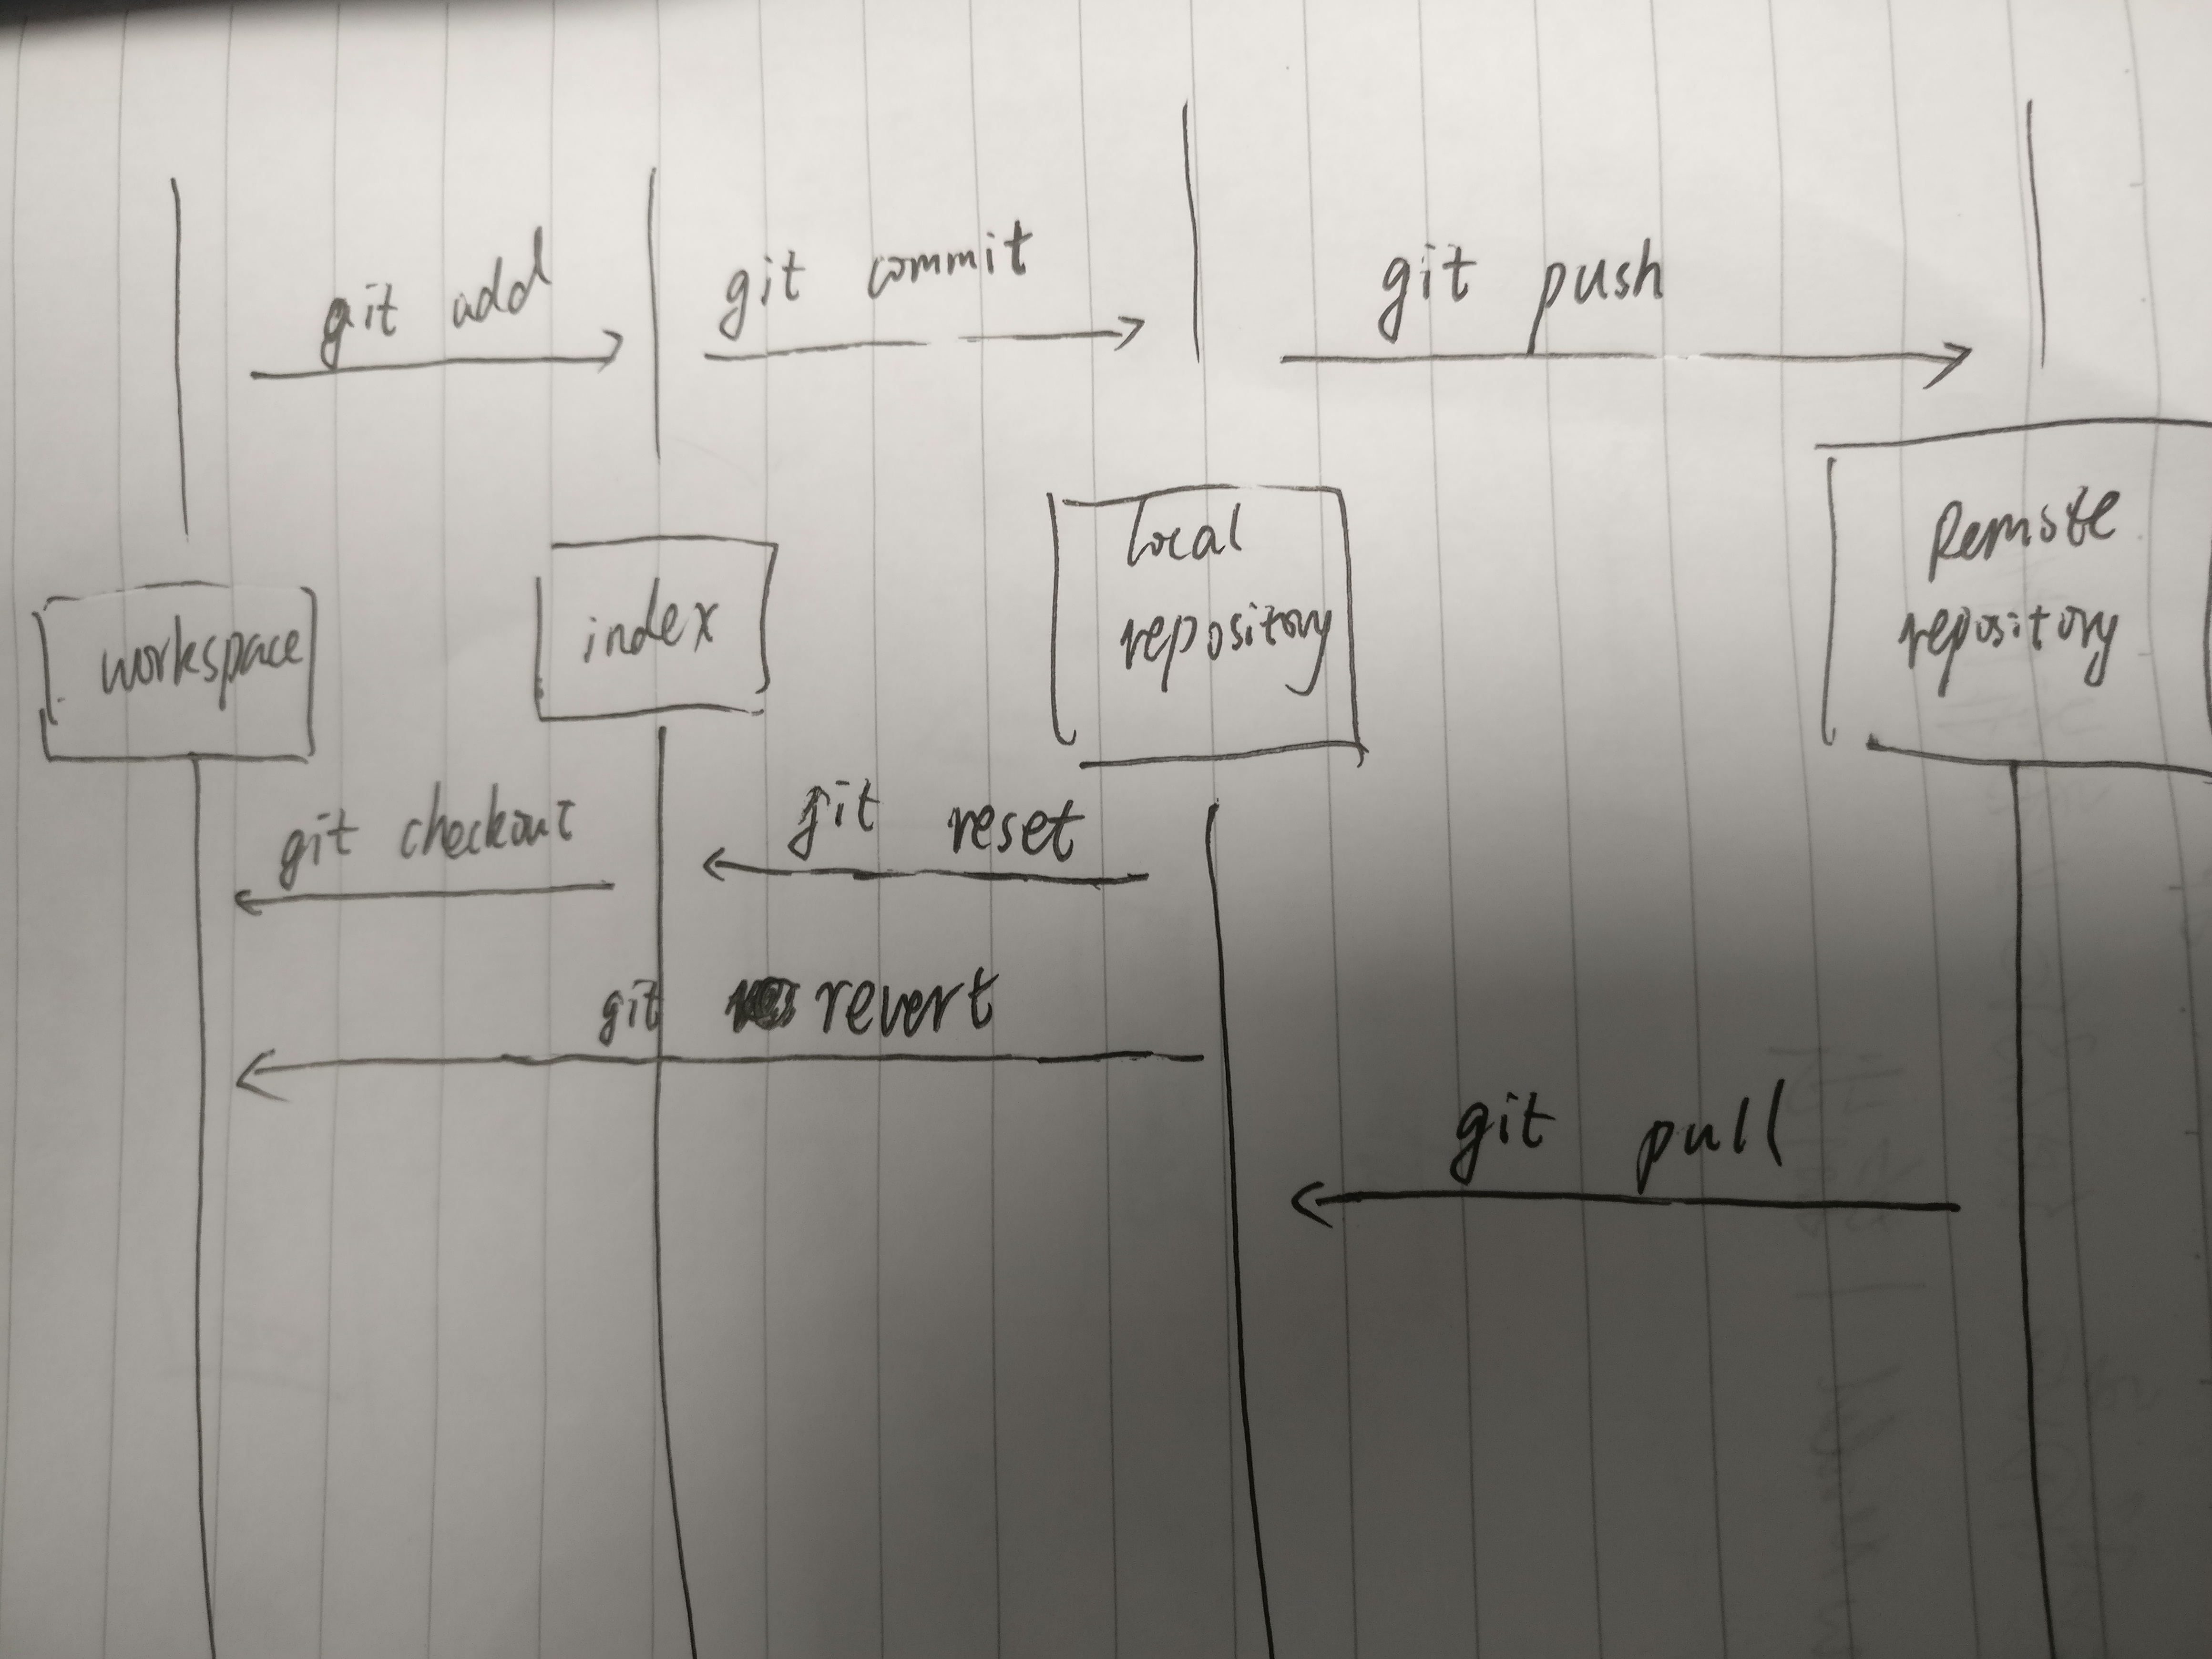 git add
git commit
git push
workspace
index
local
repository
Remote
repository
git checkout
git reset
git revert
git pull